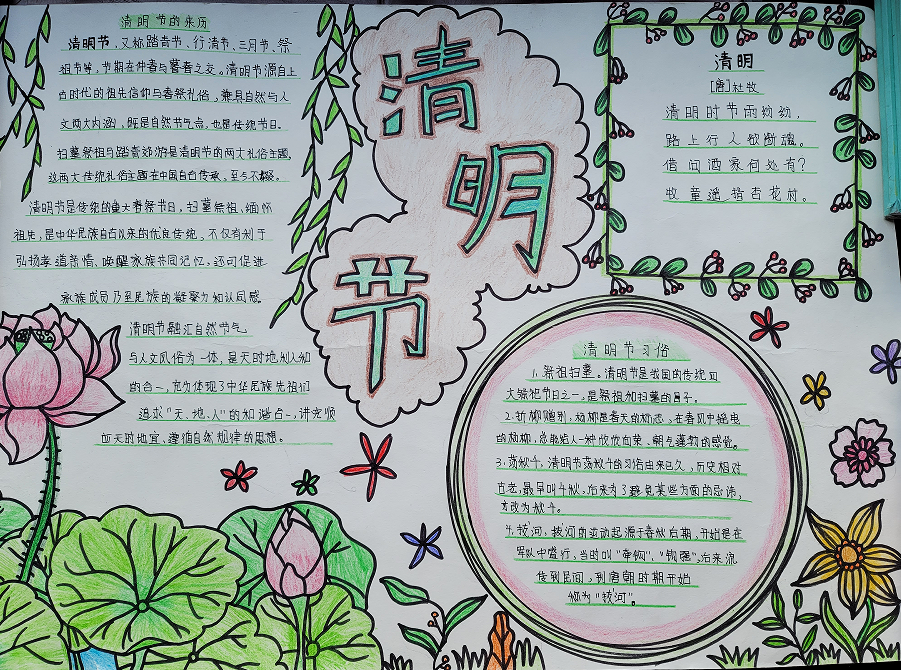 清明节的来历
清明节，又称踏青节、行清节、三月节、祭
祖节等，节期在仲春与暮春之交。清明节源自上
古时代的祖先信仰与春祭礼俗，兼具自然与人
文两大内涵，既是自然节气点，也是传统节日。
扫墓祭祖与踏青郊游是清明节的两大礼俗主题，
这两大传统礼俗主题在中国自古传承，至今不辍。
清明节是传统的重大春祭节日，扫墓祭祖、缅怀
祖先，是中华民族自古以来的优良传统，不仅有利于
弘扬孝道亲情、唤醒家族共同记忆，还可促进
家族成员乃至民族的凝聚力和认同感
清明节融汇自然节气
与人文风俗为一体，是天时地利人和
的合一，充分体现了中华民族先祖们
追求“天、地、人”的和谐合一，讲究顺
应天时地宜、遵循自然规律的思想。
清明节
清明
[唐]杜牧
清明时节雨纷纷，
路上行人欲断魂。
借问酒家何处有？
牧童遥指杏花村。
清明节习俗
1、祭祖扫墓。清明节是我国的传统四
大祭祀节日之一，是祭祖和扫墓的日子。
2、折柳赠别，杨柳是春天的标志，在春风中摇曳
的杨柳，总能给人一种欣欣向荣、朝气蓬勃的感觉。
3、荡秋千，清明节荡秋千的习俗由来已久，历史相对
古老，最早叫千秋，后来为了避免某些方面的忌讳，
才改为秋千。
4、拔河，拔河的运动起源于春秋后期，开始是在
军队中盛行，当时叫“牵钩”、“钩强”，后来流
传到民间，到唐朝时期开始
称为“拔河”。